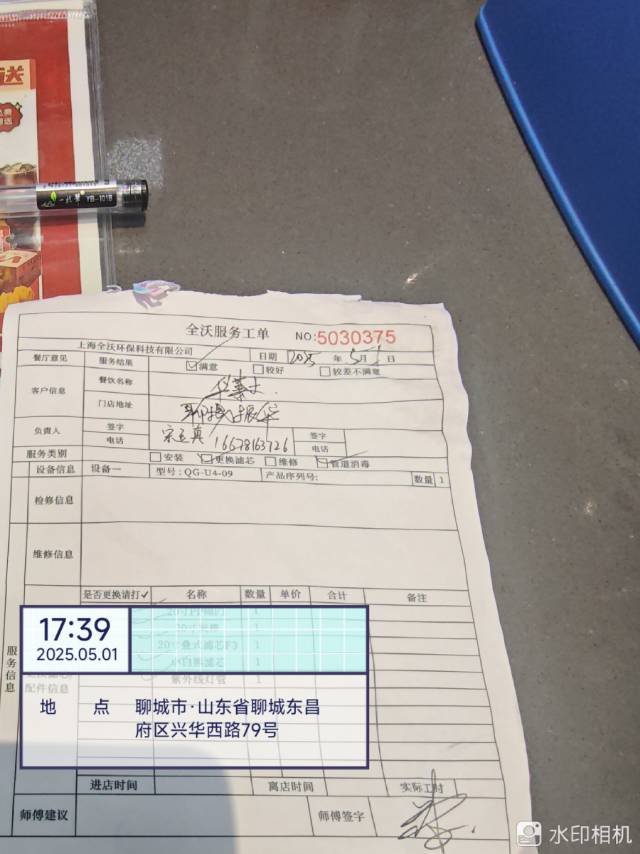 全沃服务工单 NO:5030375
上海全沃环保科技有限公司 日期 2025 年 5月 1 日
餐厅意见 服务结果 满意 较好 较差不满意
客户信息 餐饮名称 华莱士
门店地址 聊城振华
负责人 签字 签字
电话 16678163726 电话
服务类别 安装 更换滤芯 维修 管道消毒
设备信息 设备一 型号: QG-U4-09 产品序列号: 数量 1
检修信息
维修信息
是否更换请打✓ 名称 数量 单价 合计 备注
1
1
20寸叠式滤芯F3 1
1
紫外线灯管 1
服务信息
配件信息
进店时间 离店时间 实际工时
师傅建议 师傅签字
17:39
2025.05.01
地 点 聊城市·山东省聊城东昌
府区兴华西路79号
水印相机
YB-101B